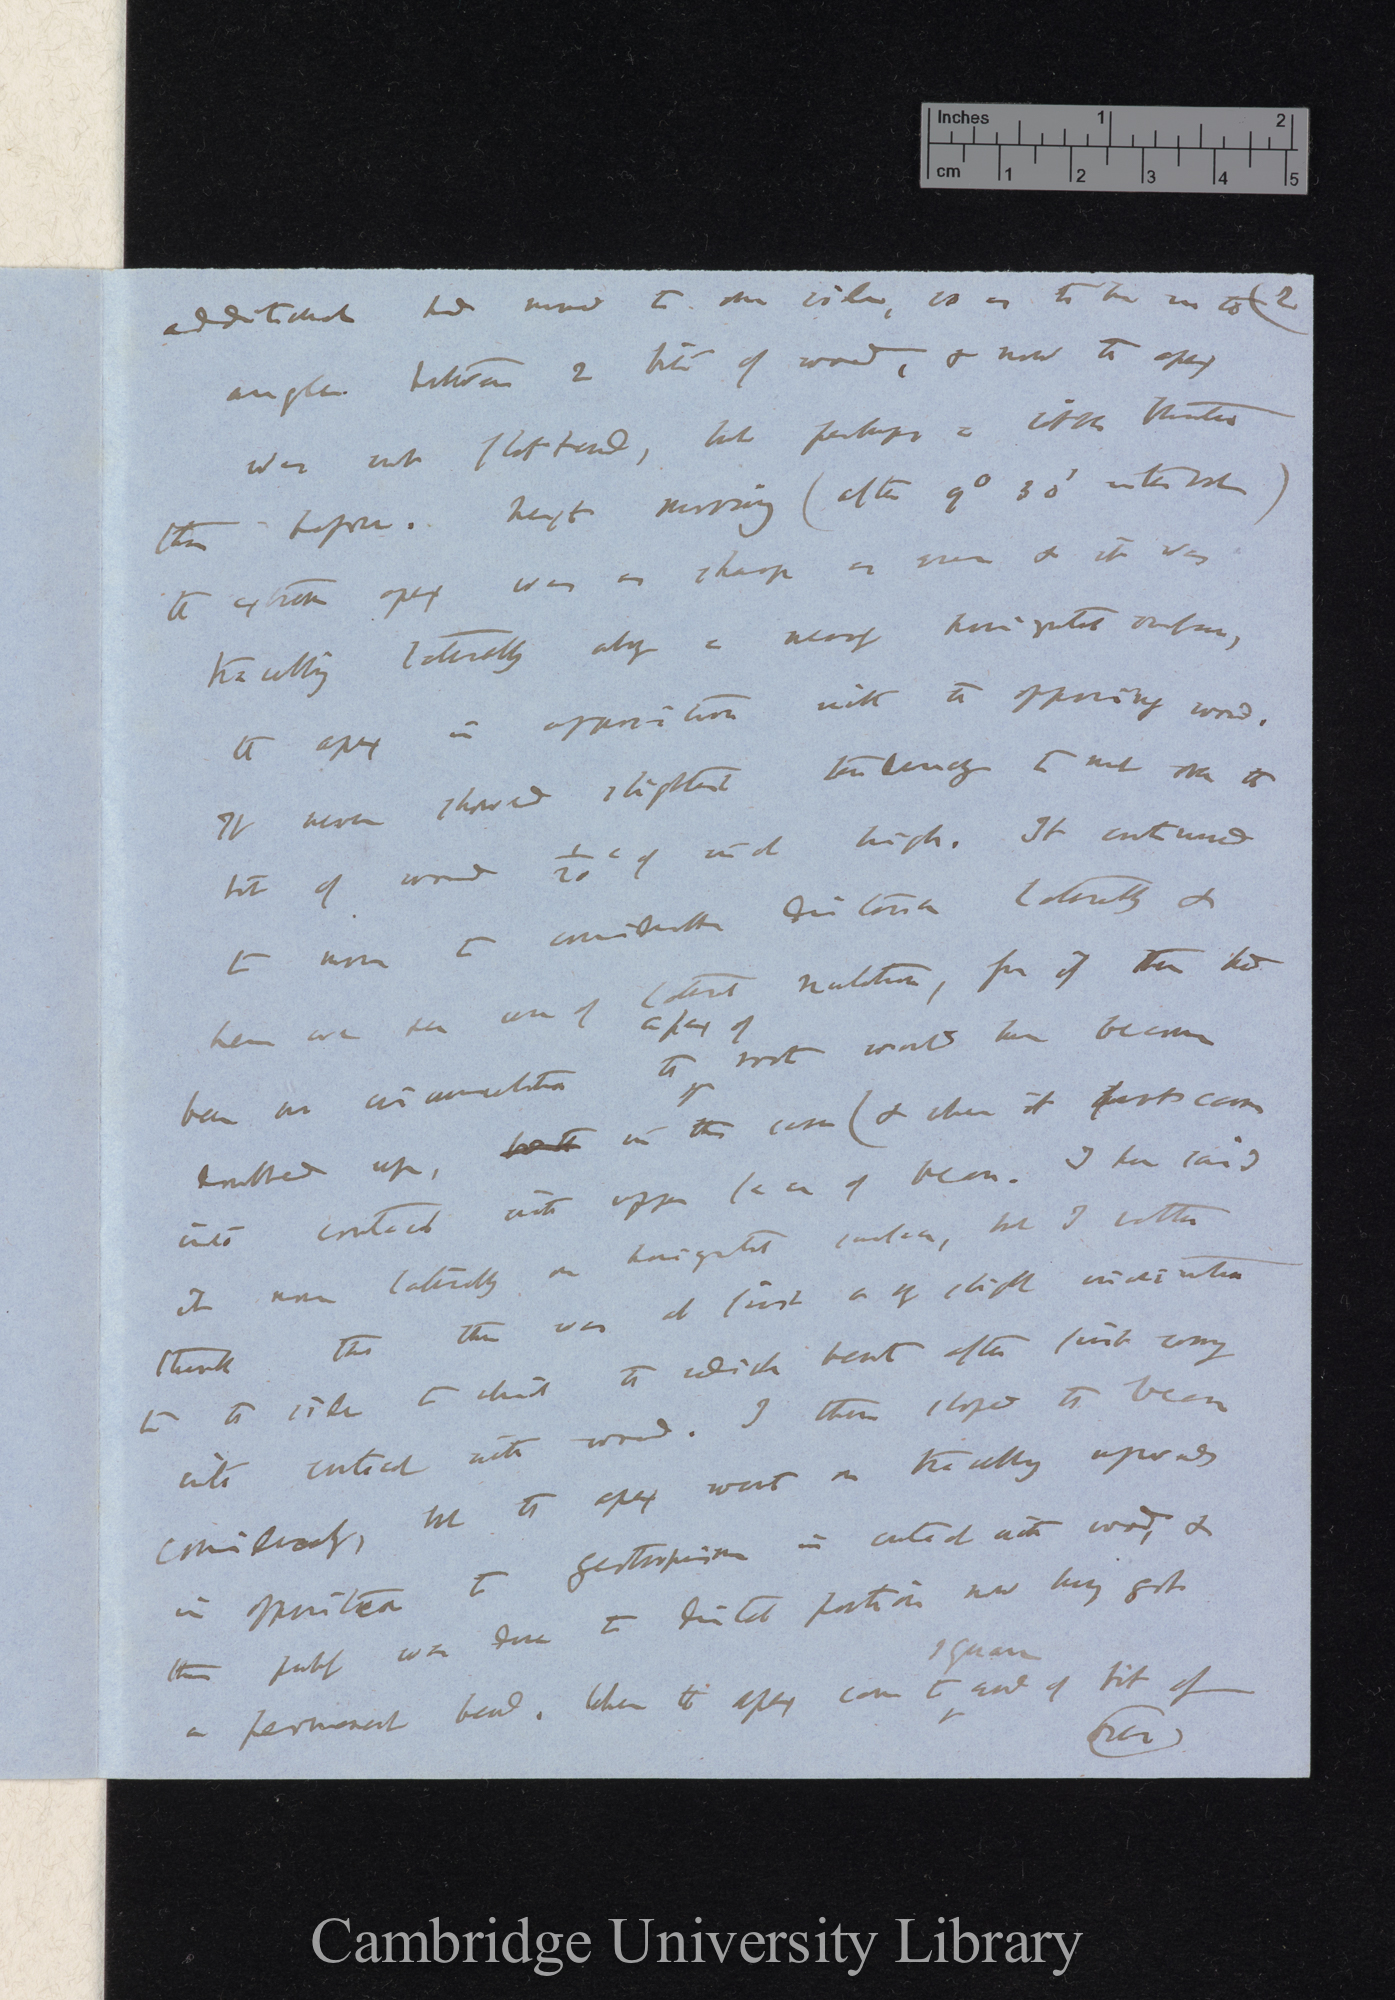 Inches 1 2
cm 1 2 3 4 5
additional had moved to one side, so as to be in the (2
angle between 2 bits of wood, & now the apex
was not flattened, but perhaps a little blunter
than before. Next morning (after 9° 30' interval)
the extreme apex was as sharp as ever & it was
travelling laterally along a nearly horizontal surface,
the apex in apposition with the opposing wood.
It never showed slightest tendency to nut over the
bit of wood 1/20th of inch high. It continued
to move to considerable distance laterally &
here we see use of lateral nutation, for if there had
been no circumnutation the apex of root would have become
doubled up, in this case (& when it first came
into contact with upper face of bean. I have said
it move laterally on horizontal surface, but I rather
think that there was at first a slight inclination
to the side to which the radicle bent after first coming
into contact with wood. I then sloped the bean
considerably, but the apex went on travelling upwards
in opposition to geotropism in contact with wood, &
this partly was due to distal portion now having got
a permanent bend. When the apex came to square end of bit of
over
Cambridge University Library